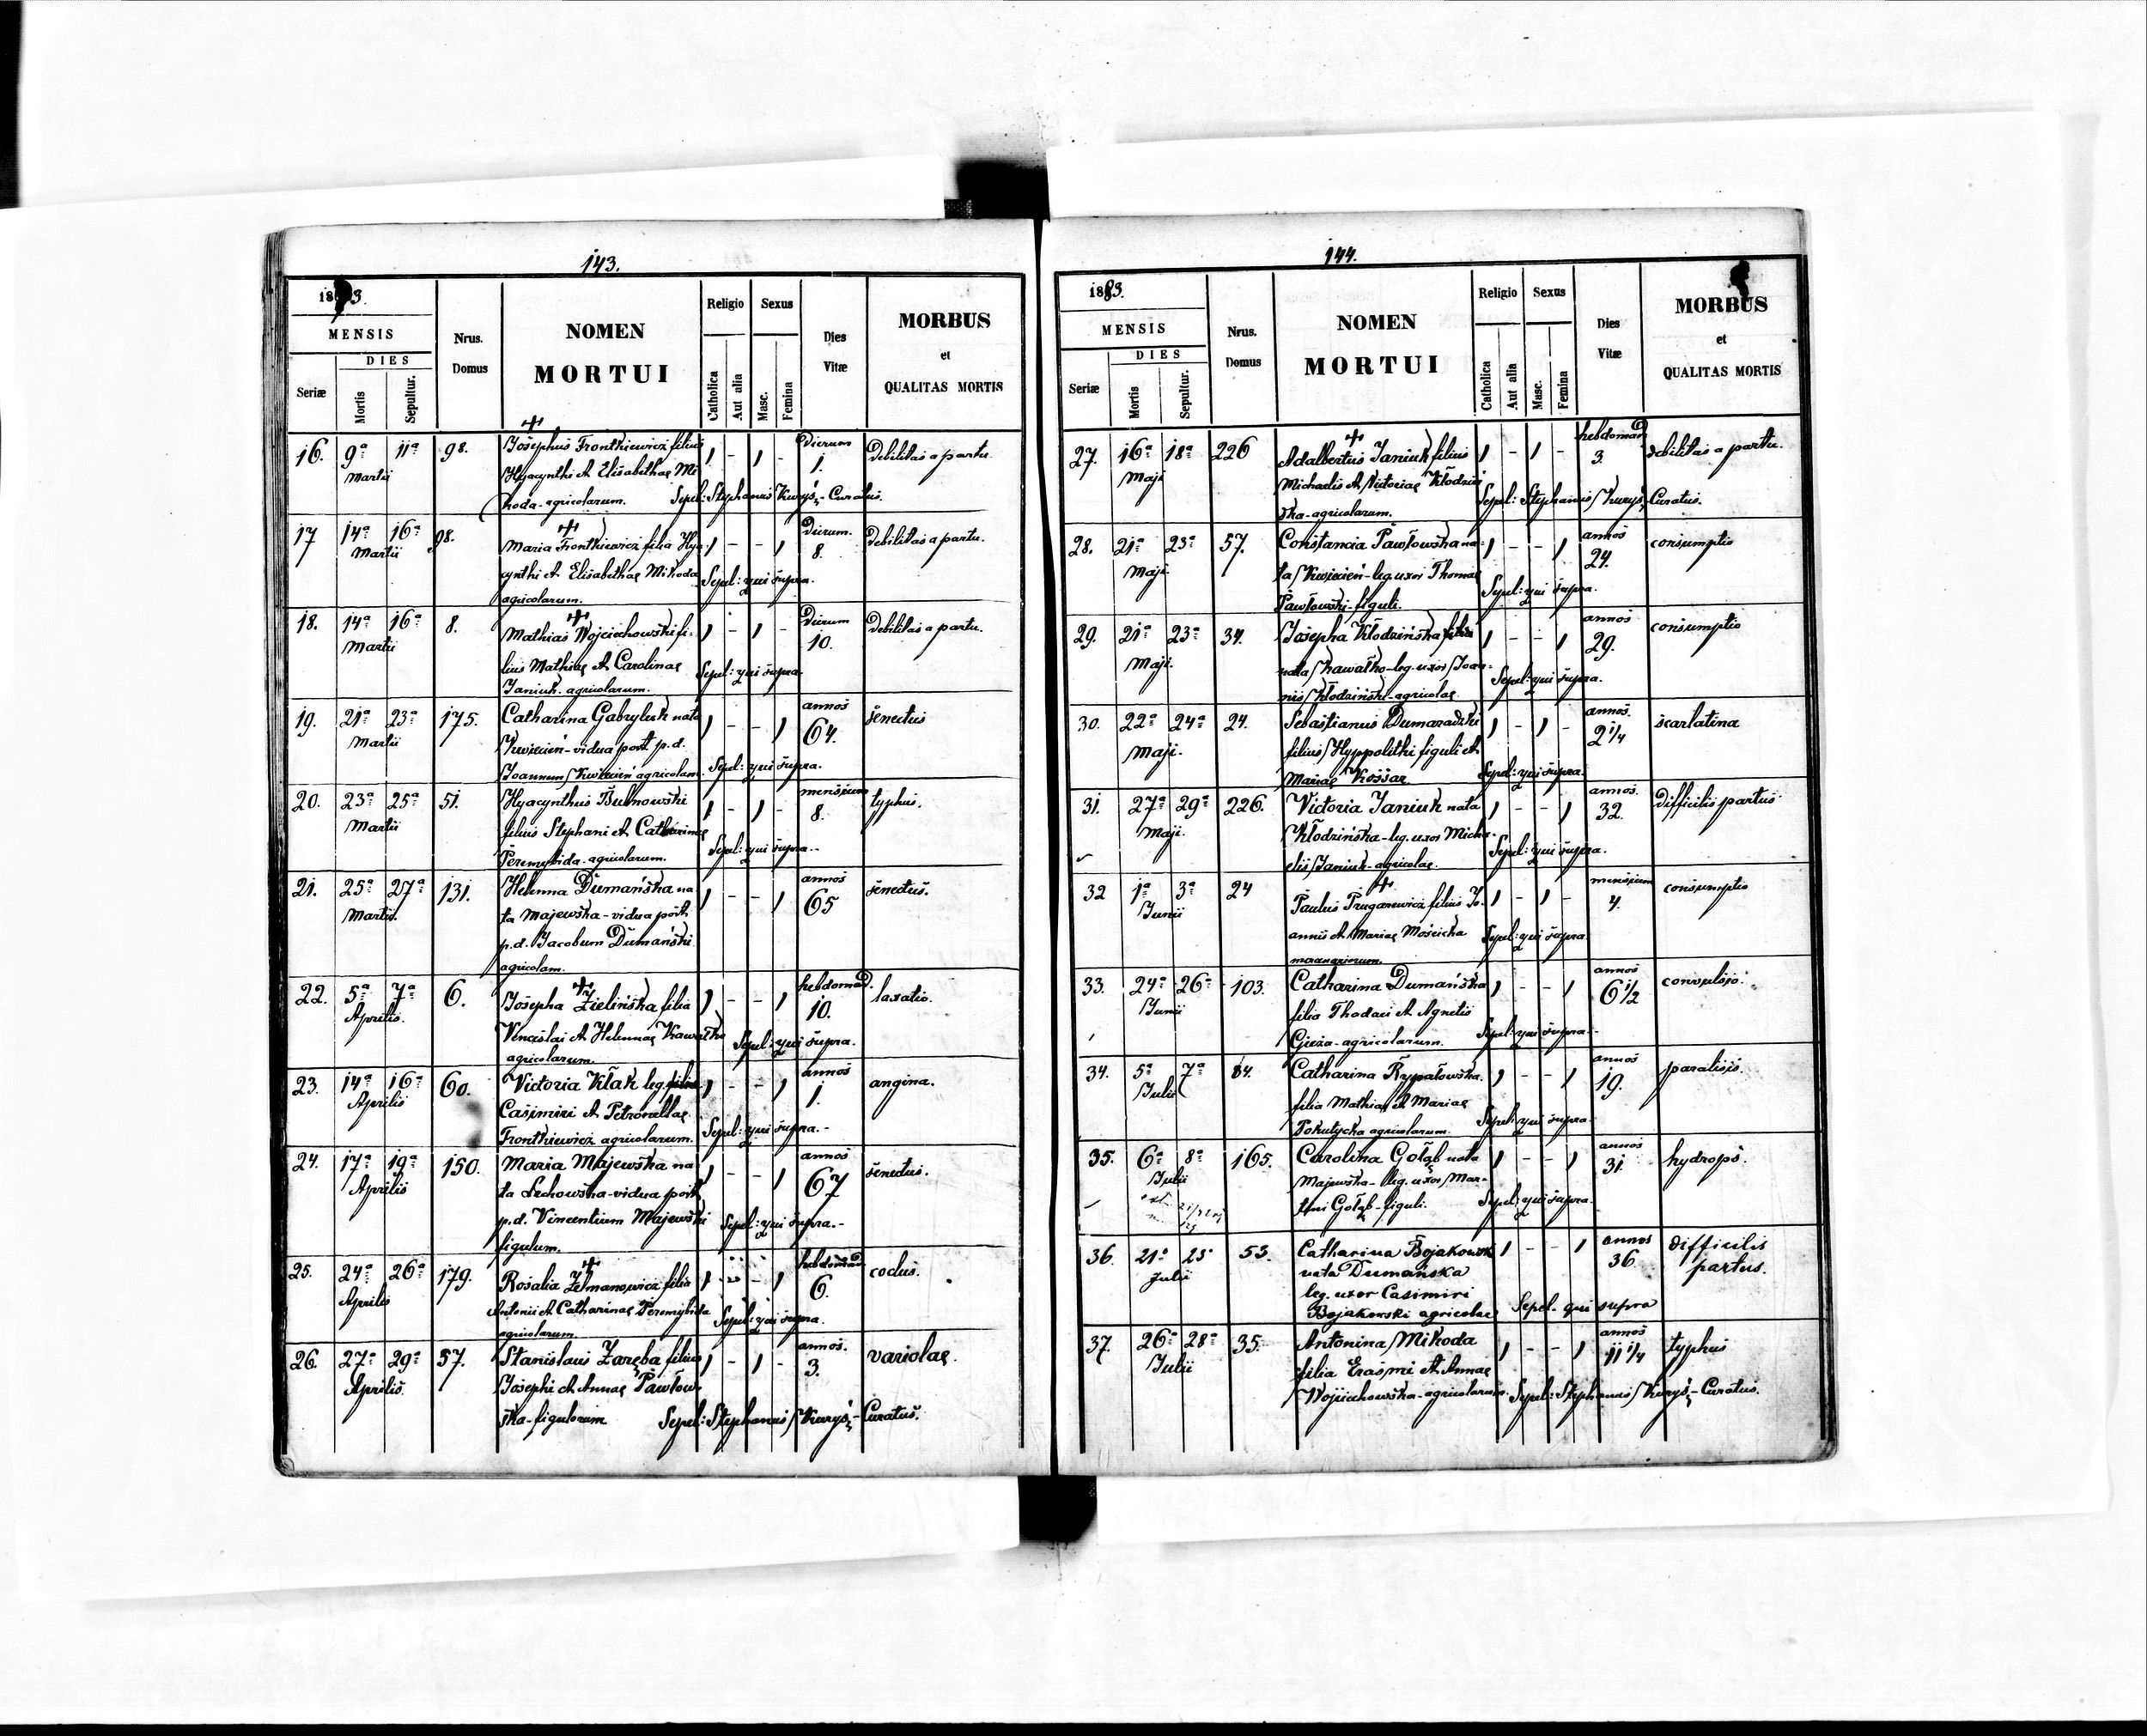 143.
1883.
MENSIS
DIES
Seriæ
Mortis
Sepultur.
Nrus. Domus
NOMEN
MORTUI
Religio
Catholica
Aut alia
Sexus
Masc.
Femina
Dies Vitæ
MORBUS
et
QUALITAS MORTIS
16. 9a 11a 98. Josephus Frontkiewicz filius 1 - 1 - Dierum 1. Debilitas a partu.
Martii Hyacynthi et Elisabethae Mi
koda - agricolarum. Sepel: Stephanus Kuryś - Curatus.
17 14a 16a 98. Maria Frontkiewicz filia Hya- 1 - - 1 Dierum. 8. Debilitas a partu.
Martii cynthi et Elisabethae Mikoda Sepel: qui supra.
agricolarum.
18. 14a 16a 8. Mathias Wojciechowski fi- 1 - 1 - Dierum 10. Debilitas a partu.
Martii lius Mathiae et Carolinae Sepel: qui supra
Janiuk. agricolarum.
19. 21a 23a 175. Catharina Gabryluk nata 1 - - 1 annos 64. senectus
Martii Kwiecień - vidua post p.d.
Joannem Kwiecień agricolam. Sepel: qui supra.
20. 23a 25a 51. Hyacynthus Bubnowski 1 - 1 - mensium 8. typhus.
Martii filius Stephani et Catharinae
Peremybida - agricolarum. Sepel: qui supra.
21. 25a 27a 131. Helenna Dumańska na 1 - - 1 annos 65 senectus.
Martii. ta Majewska - vidua post
p.d. Jacobum Dumański
agricolam.
22. 5a 7a 6. Josepha Zielińska filia 1 - - 1 hebdomad. 10. laxatio.
Aprilis. Venceslai et Helennae Kawałko Sepel: qui supra.
agricolarum.
23. 14a 16a 60. Victoria Kłak leg. filia 1 - - 1 annos 1. angina.
Aprilis Casimiri et Petronellae
Frontkiewicz agricolarum. Sepel: qui supra. -
24. 17a 19a 150. Maria Majewska na 1 - - 1 annos 67 senectus.
Aprilis ta Lechowska - vidua post
p.d. Vincentium Majewski Sepel: qui supra. -
figulum.
25. 24a 26a 179. Rosalia Zelmanowicz filia 1 - - 1 hebdomad. 6.
Aprilis Antonii et Catharinae Peremybida Sepel: qui supra.
agricolarum.
26. 27a 29a 57. Stanislaus Zaręba filius 1 - 1 - annos. 3. variolae.
Aprilis. Josephi et Annae Pawłow-
ska - figulorum Sepel: Stephanus Kuryś - Curatus.
144.
1883.
MENSIS
DIES
Seriæ
Mortis
Sepultur.
Nrus. Domus
NOMEN
MORTUI
Religio
Catholica
Aut alia
Sexus
Masc.
Femina
Dies Vitæ
MORBUS
et
QUALITAS MORTIS
27. 16a 18a 226 Adalbertus Janiuk filius 1 - 1 - hebdomad 3. debilitas a partu.
Maji Michaelis et Victoriae Kłodziń
ska - agricolarum. Sepel: Stephanus Kuryś Curatus.
28. 21a 23a 57. Constancia Pawłowska na- 1 - - 1 annos 24. consumptio
Maji. ta Kwiecień - leg. uxor Thomae Sepel: qui supra.
Pawłowski - figuli.
29. 21a 23a 34. Josepha Kłodzińska 1 - - 1 annos 29. consumptio
Maji. nata Kawałko - leg. uxor Joan- Sepel: qui supra.
nis Kłodziński - agricolae.
30. 22a 24a 24. Sebastianus Dumaradzki 1 - 1 - annos. 2 1/4 scarlatina
Maji. filius Hyppolithi figuli et
Mariae Kossar Sepel: qui supra.
31. 27a 29a 226. Victoria Janiuk nata 1 - - 1 annos. 32. difficilis partus
Maji. Kłodzińska - leg. uxor Micha-
elis Janiuk - agricolae. Sepel: qui supra.
32 1a 3a 24 Paulus filius Jo- 1 - 1 - mensium 4. consumptio
Junii annis et Mariae Mościcka Sepel: qui supra.
33. 24a 26a 103. Catharina Dumańska 1 - - 1 annos 6 1/2 convulsio.
Junii filia Thadaei et Agnetis
Gieza - agricolarum. Sepel: qui supra.
34. 5a 7a 84. Catharina Rypałowska. 1 - - 1 annos 19. paralisis.
Julii filia Mathiae et Mariae
Pokutycka agricolarum. Sepel: qui supra
35. 6a 8a 165. Carolina Gołąb nata 1 - - 1 annos 31 hydrops.
Julii Majewska - leg. uxor Mar-
tini Gołąb - figuli. Sepel: qui supra.
36. 21a 23a 53. Catharina Bojakowski 1 - - 1 annos 36. difficilis
Julii nata Dumańska partus.
leg. uxor Casimiri
Bojakowski agricolae Sepel. qui supra
37. 26a 28a 35. Antonina Mikoda 1 - - 1 annos 11 1/4 typhus
Julii filia Erasmi et Annae
Wojciechowska - agricolarum. Sepel: Stephanus Kuryś - Curatus.